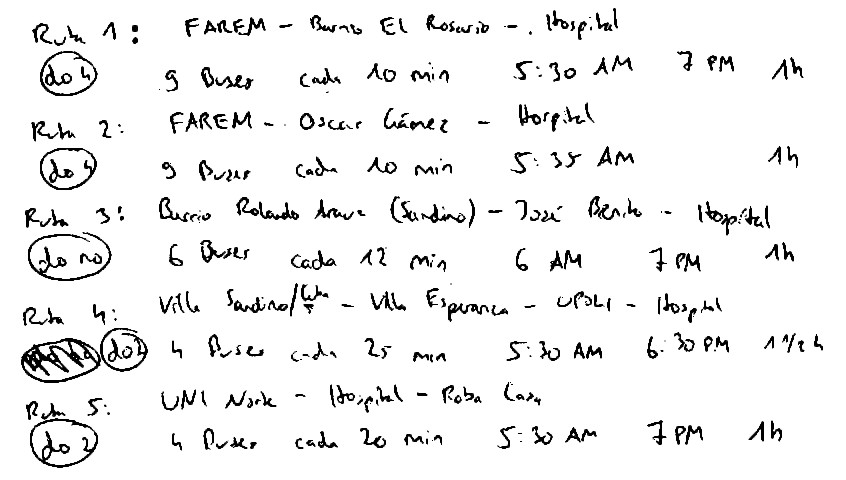 Ruta 1: FAREM - Barrio El Rosario - . Hospital
do 4 9 Buses cada 10 min 5:30 AM 7 PM 1h
Ruta 2: FAREM - Oscar Gámez - Hospital
do 4 9 Buses cada 10 min 5:35 AM 1h
Ruta 3: Barrio Rolando (Sandino) - José Benito - Hospital
do no 6 Buses cada 12 min 6 AM 7 PM 1h
Ruta 4: Villa Sandino/Cuba - Villa Esperanza - UPOLI - Hospital
do 2 4 Buses cada 25 min 5:30 AM 6:30 PM 1 1/2 h
Ruta 5: UNI Norte - Hospital - Roba Casa
do 2 4 Buses cada 20 min 5:30 AM 7 PM 1h